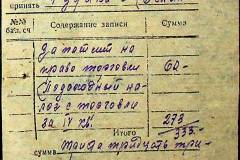 принять
№№ бал. сч.
Содержание записи
Сумма
за патент на
право торговли 60-
Подоходный на-
лог с торговли
за IV кв. 273
Итого 333-
Триста тридцать три-